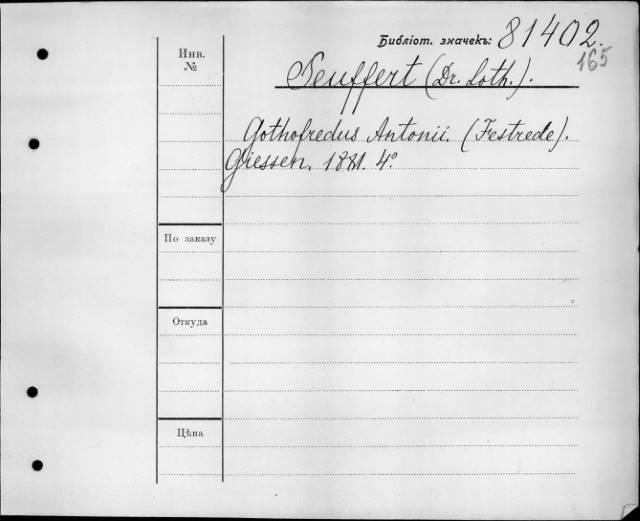 Библіот. значекъ: 81402.
165
Инв.
№
Seuffert (Dr. Loth.).
Gothofredus Antonii. (Festrede).
Giessen. 1881. 4º
По заказу
Откуда
Цѣна